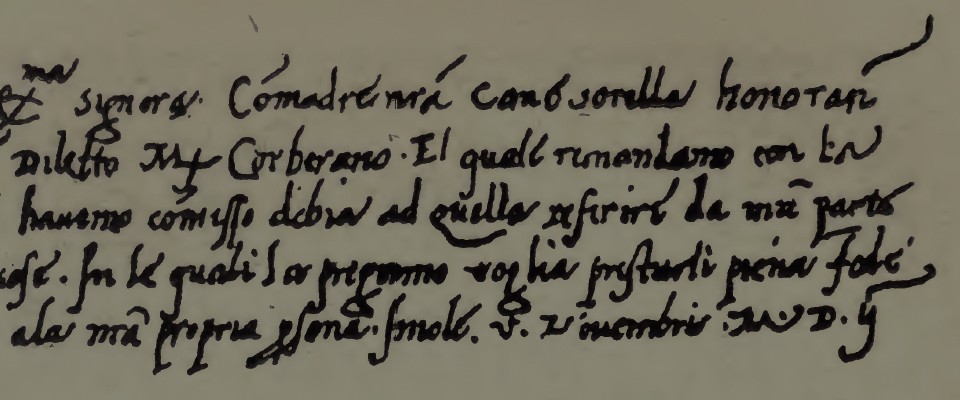 Ex.ma Signora Comadre nrã como sorella honoran
Diletto M. Corberano. El quale remandamo con la
hauemo cõmisso debia ad quella referire da nrã parte
cose. In le quali la pregamo voglia prestarli piena fede
ala nrã propria psona. Imole. V. Nouembris. M. D. ij